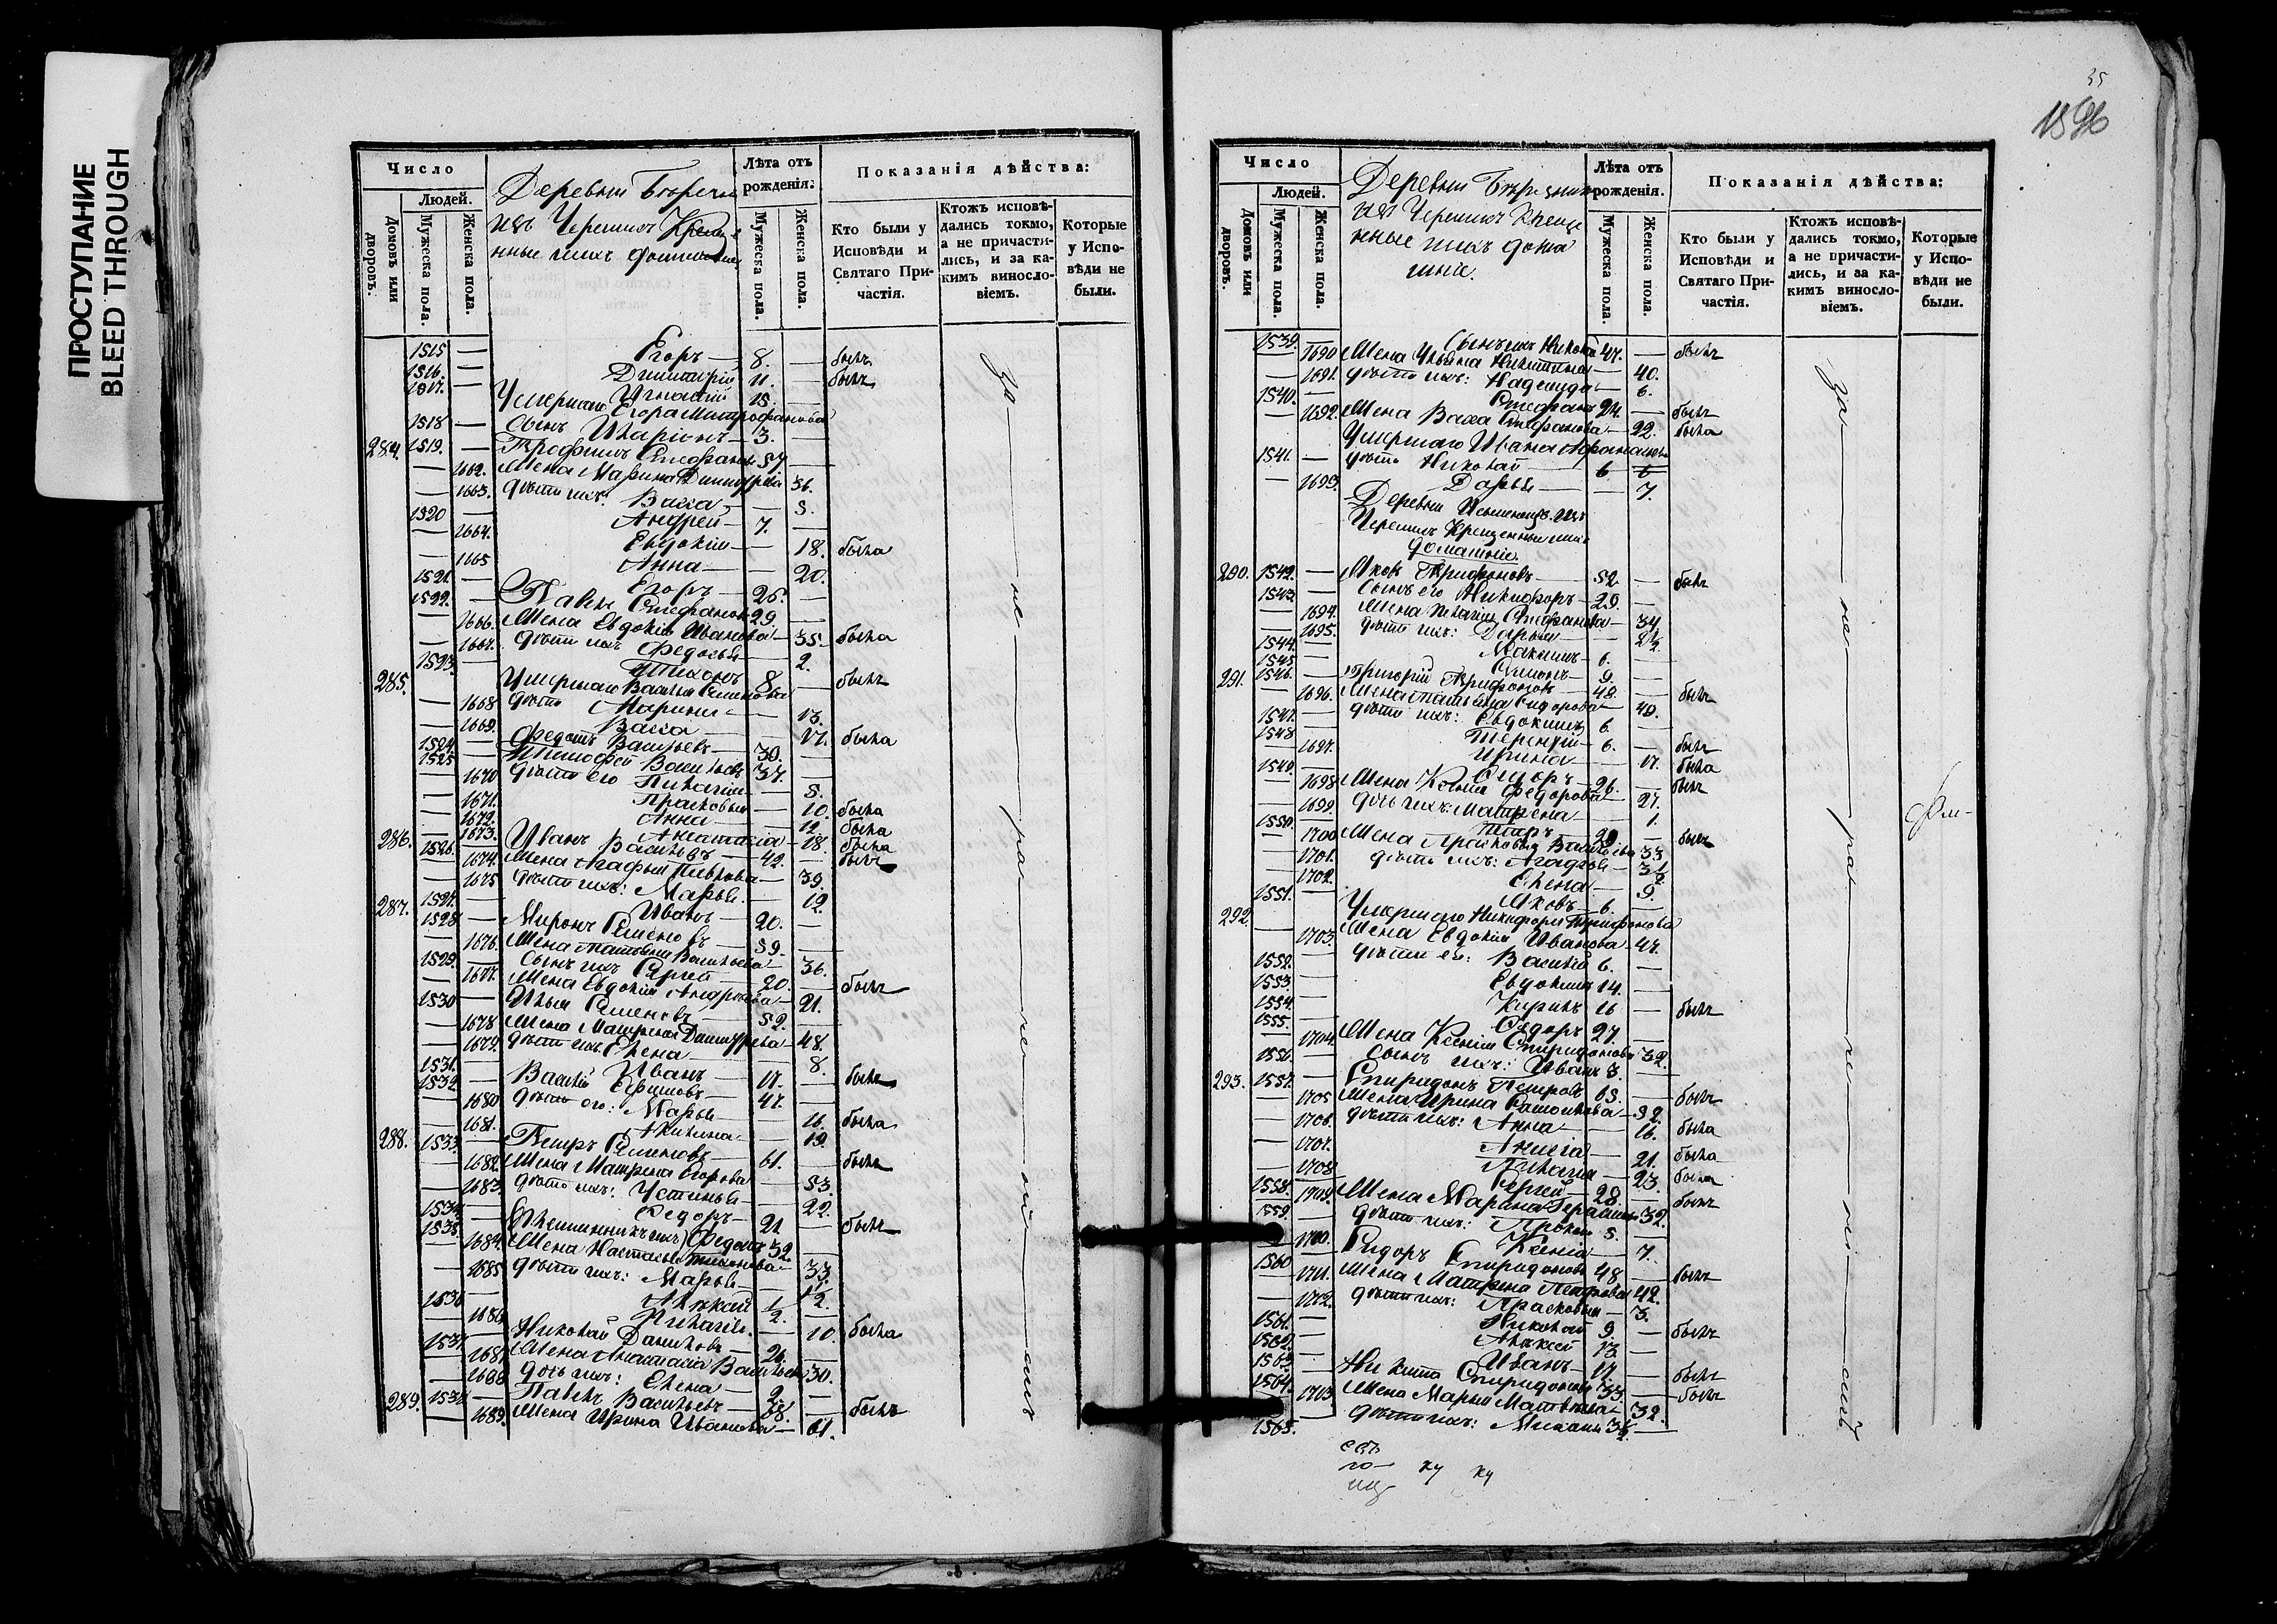 ПРОСТУПАНИЕ
BLEED THROUGH
Число
Людей.
Домовъ или дворовъ.
Мужеска пола.
Женска пола.
Деревни
изъ Черемисъ
ные ихъ домашніе
Лѣта отъ рожденія:
Мужеска пола.
Женска пола.
Показанія дѣйства:
Кто были у Исповѣди и Святаго Причастія.
Ктожъ исповѣдались токмо, а не причастились, и за какимъ винословіемъ.
Которые у Исповѣди не были.
1515 — Егоръ — 8. — былъ
1516. — Димитрій 11. — былъ
1517. — Игнатій 15. —
Умершаго Егора Митрофанова
1518 — Сынъ Иларіонъ — 3. —
284. 1519. — Трофимъ Стефановъ 57. —
— 1662. Жена Марина — 56.
— 1663. дѣти ихъ: Васса — — 5.
1520 — Андрей — 7. —
— 1664. Евдокія — — 18. была
— 1665 Анна — — 20.
1521. — Егоръ — 25. —
1522. — Павелъ Стефановъ 29. —
— 1666. Жена Евдокія Иванова — 35. была
— 1667. дѣти ихъ Федосья — 2.
1523. — Тихонъ 8 — былъ
285. Умершаго Василія Семенова
— 1668 дѣти Марина — — 13.
— 1669. Васса — — 17. была
1524. — Федотъ Васильевъ — 30. —
1525 — Тимофей Васильевъ 37. —
— 1670 дѣти его Пелагія — — 5.
— 1671. Прасковья — — 10. была
— 1672. Анна — — 12 была
— 1673. Анастасія — 18. была
286. 1526. — Иванъ Васильевъ — 42. — былъ
— 1674. Жена Агафья Павлова — 39.
— 1675 дѣти ихъ: Марья. — 12.
1527. — Иванъ — 20. —
287. 1528 — Миронъ Семеновъ — 59. —
— 1676. Жена Татьяна Васильева — 36.
1529. — Сынъ ихъ Сергей — 20. — былъ
— 1677. Жена Евдокія Андреева — 21.
1530 — Илья Семеновъ — 52. —
— 1678 Жена Матрена — 48.
— 1679. дѣти ихъ: Елена — 8.
1531. — Иванъ — 17. — былъ
1532 — Василій Ефимовъ — 47. —
— 1680 дѣти его: Марья — 16. была
— 1681. Акилина — 19.
288. 1533. — Петръ Семеновъ — 61. — былъ
— 1682. Жена Матрена Егорова — 53.
— 1683. дѣти ихъ: Устинья — 22.
1534. — Федоръ — 21. — былъ
1535. — Племянникъ ихъ Федотъ 32. —
— 1684. Жена Настасья Тихонова — 33.
— 1685 дѣти ихъ: Марья — 2.
1536 — Алексѣй 2. —
— 1686. Пелагія. — 10. была
1537. — Николай Даниловъ — 26. —
— 1687 Жена Анастасія Васильева 30.
— 1688 дочь ихъ: Елена — 2. —
289. 1538. — Павелъ Васильевъ — 58. — былъ
— 1689. Жена Ирина Иванова — 61.
За — не — рас — ке — ні — емъ
35
1896
Число
Людей.
Домовъ или дворовъ.
Мужеска пола.
Женска пола.
Деревни
изъ Черемисъ Креще
ные ихъ дома
шніе.
Лѣта отъ рожденія.
Мужеска пола.
Женска пола.
Показанія дѣйства:
Кто были у Исповѣди и Святаго Причастія.
Ктожъ исповѣдались токмо, а не причастились, и за какимъ винословіемъ.
Которые у Исповѣди не были.
1539. — Сынъ ихъ Никола 47. — былъ
— 1690 Жена Ульяна Никитина — 40.
— 1691. дѣти ихъ: Надежда — 6.
1540. — Стефанъ 24. — былъ
— 1692. Жена Васса Стефанова — 22. была
Умершаго Ивана
1541. — дѣти Николай — 6
— 1693. Дарья — — 7.
Деревни изъ
Черемисъ Крещенные ихъ
домашніе.
290. 1542. — Яковъ Трифоновъ — 52 — былъ
1543. — Сынъ его Никифоръ — 29. —
— 1694. Жена Пелагія Стефанова — 34.
— 1695. дѣти ихъ: Дарья — 2½
1544. — Максимъ — 6. —
1545 — Симонъ — 9. —
291. 1546. — Григорій Трифоновъ — 48. — былъ
— 1696. Жена Татьяна Сидорова — 49.
1547. — дѣти ихъ: Евдокимъ 6. —
1548 — Терентій — 6. — былъ
— 1697. Ирина — 17. была
1549. — Сидоръ — 26. — былъ
— 1698 Жена Ксенія Федорова — 27.
— 1699 дочь ихъ: Матрена — 1.
1550. — Петръ — 29. — былъ
— 1700 Жена Прасковья Васильева 33
— 1701. дѣти ихъ: Агафья — 3½
— 1702. Елена — 9.
1551. — Яковъ — 6. —
292. Умершаго Никифора Трифонова
— 1703. Жена Евдокія Иванова — 47.
1552. — дѣти ея: Василій 6. —
1553. — Евдокимъ 14. —
1554 — Кирилъ 16 — былъ
1555. — Сидоръ 27. —
— 1704. Жена Ксенія Спиридонова 32.
1556. — Сынъ ихъ: Иванъ 3. —
293. 1557. — Спиридонъ Петровъ 63. — былъ
— 1705 Жена Ирина — 52.
— 1706. дѣти ихъ: Анна — 16. была
— 1707. Анисія — 21. была
— 1708 Пелагія — 23. была
1558. — Сергей — 28. — былъ
— 1709. Жена Марина — 32.
1559. — дѣти ихъ: 5. —
— 1710. Ксенія — 7.
1560 — Сидоръ Спиридоновъ 48 — былъ
— 1711. Жена Матрена Петрова 42.
— 1712. дѣти ихъ: Прасковья — 3.
1561. — Николай 9. — былъ
1562. — Алексей 13. —
1563. — Иванъ 17. — былъ
1564. — Никита Спиридоновъ 33. — былъ
— 1713. Жена Марья Матвѣева — 32.
1565. дѣти ихъ: —
За — не — рас — ке — ні — емъ
ку ку